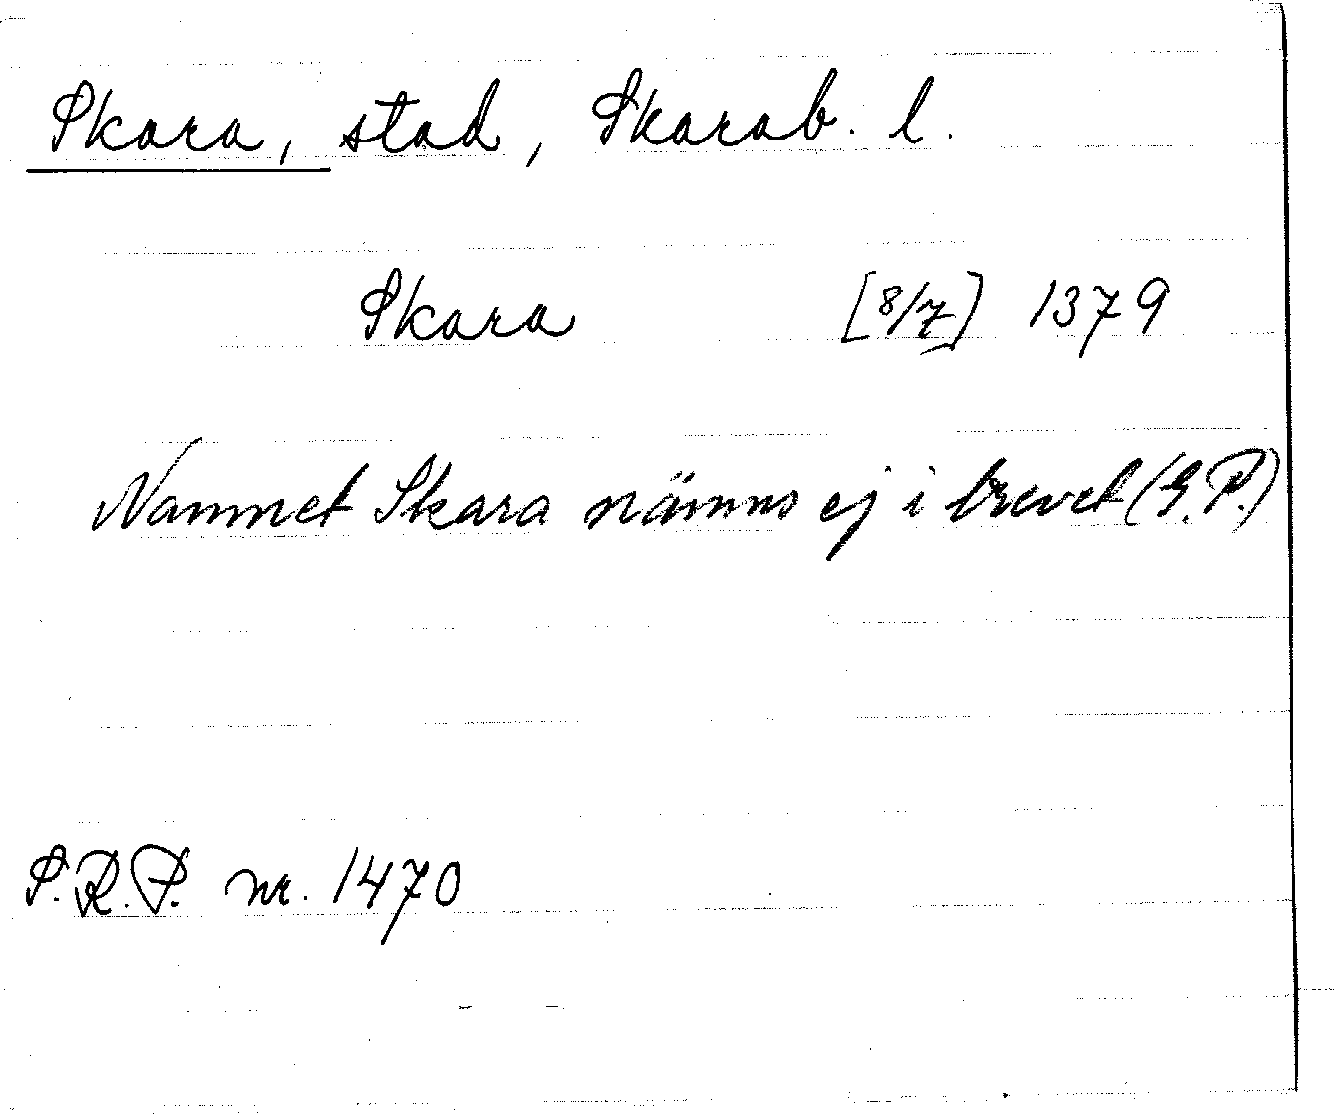 Skara, stad, Skarab. l.
Skara [8/7] 1379
Namnet Skara nämns ej i brevet (G.P.)
S.R.P. nr. 1470